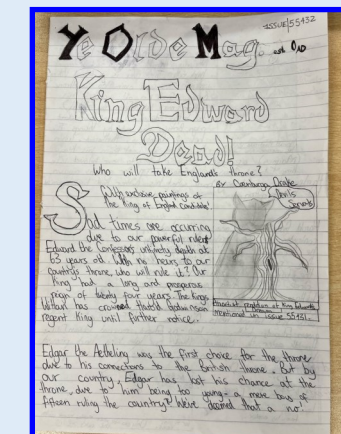 ISSUE/55432
Ye Olde Mag. est 0AD
King Edward
Dead!
Who will take England's throne?
BY Drake
With exclusive paintings of
the King of England candidate!
Devils
Servants
Sad times are occurring
due to our powerful ruler
Edward the Confessors untimely death at
63 years old. With no heirs to our
countries throne, who will rule it? Our
King had a long and prosperous
reign of twenty four years. The Kings
Witan has crowned Harold Godwinson
regent King until further notice.
Artist rendition of King Edwards
Dream
Mentioned in issue 55431.
Edgar the Aetheling was the first choice for the throne
due to his connections to the British throne. But by
our country, Edgar has lost his chance at the
throne, due to him being too young - a mere boy of
fifteen ruling the country? We've deemed that a no!